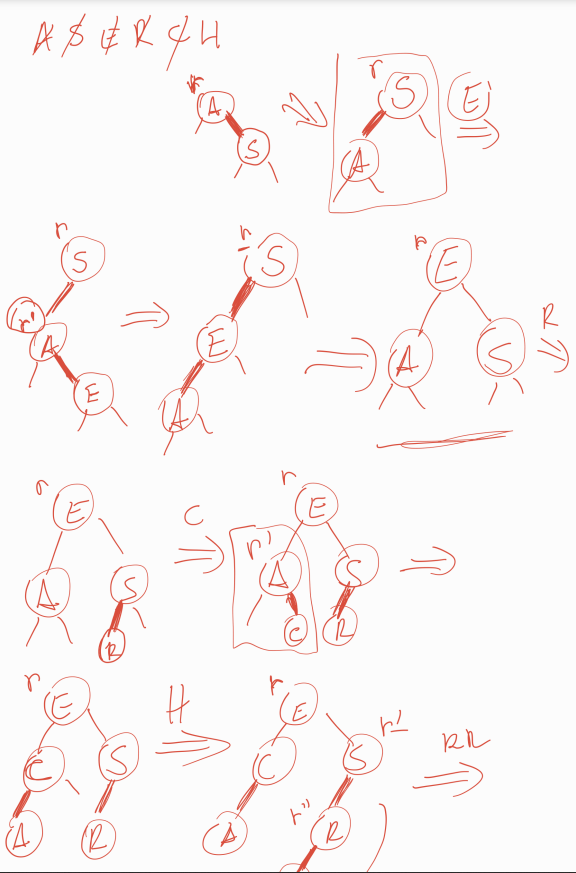 A S E R C H
r
A
S
r
S
A
E
r
S
r'
A
E
r
S
E
A
r
E
A
S
R
r
E
A
S
R
C
r
E
r'
A
S
C
R
r
E
C
S
A
R
H
r
E
C
S
r'
A
R
r''
RR